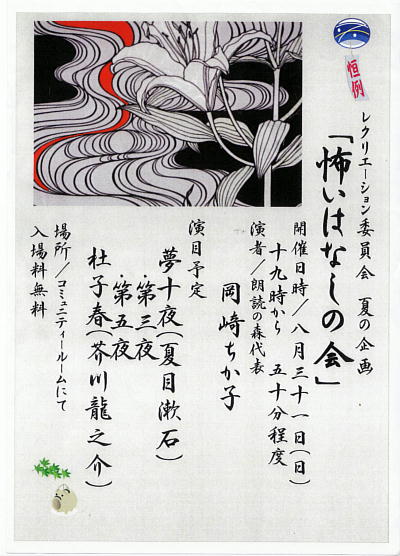 恒例
レクリエーション委員会 夏の企画
「怖いはなしの会」
開催日時／八月三十一日(日)
十九時から 五十分程度
演者／朗読の森代表
岡崎ちか子
演目予定
夢十夜(夏目漱石)
・第三夜
・第五夜
杜子春(芥川龍之介)
場所／コミュニティールームにて
入場料無料